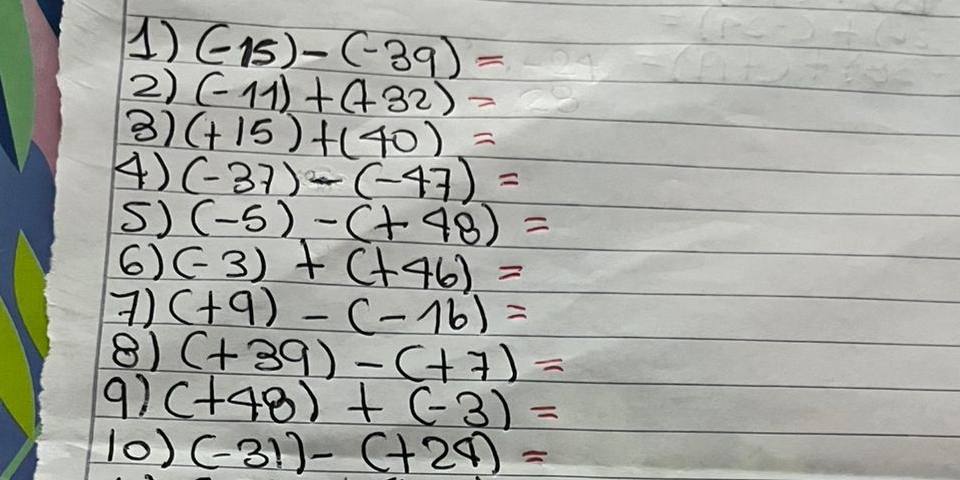 1) (-15) - (-39) =
2) (-11) + (+32) =
3) (+15) + (40) =
4) (-37) - (-47) =
5) (-5) - (+48) =
6) (-3) + (+46) =
7) (+9) - (-16) =
8) (+39) - (+7) =
9) (+48) + (-3) =
10) (-31) - (+24) =